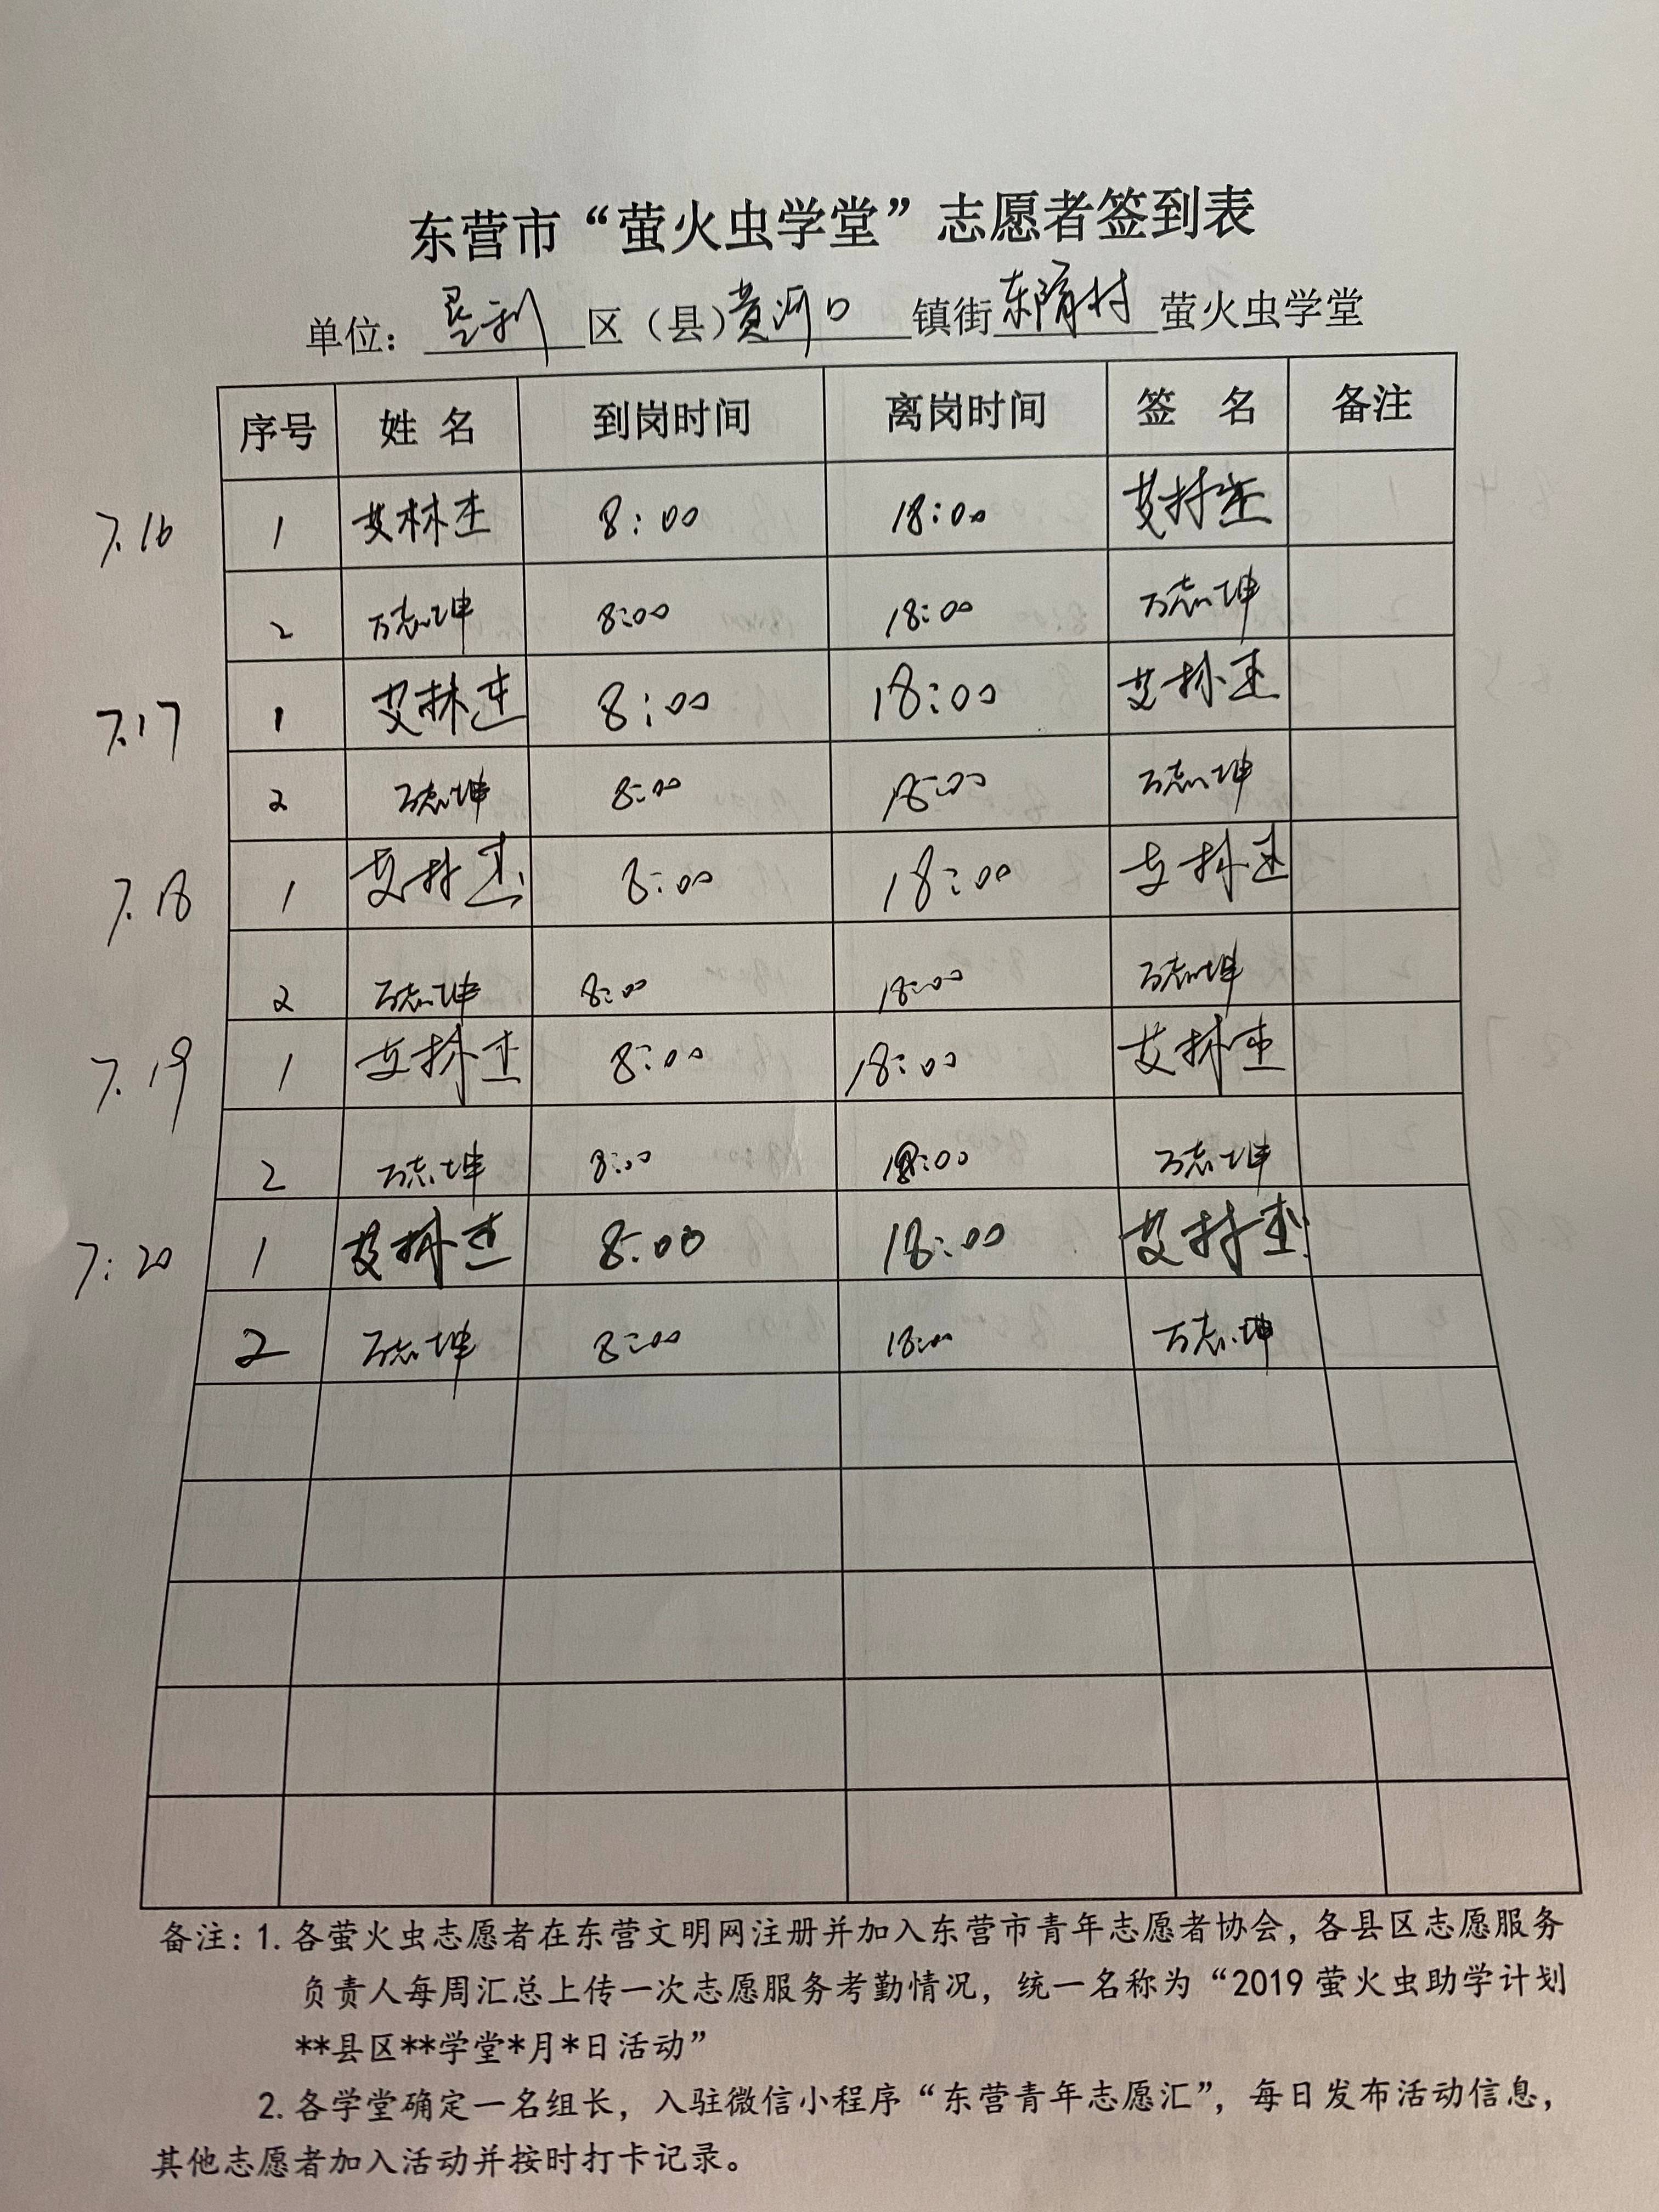 东营市“萤火虫学堂”志愿者签到表
单位：垦利区（县）黄河口镇街东隋村萤火虫学堂
序号 姓名 到岗时间 离岗时间 签名 备注
7.16 1 艾林杰 8:00 18:00 艾林杰
2 万志坤 8:00 18:00 万志坤
7.17 1 艾林杰 8:00 18:00 艾林杰
2 万志坤 8:00 18:00 万志坤
7.18 1 艾林杰 8:00 18:00 艾林杰
2 万志坤 8:00 18:00 万志坤
7.19 1 艾林杰 8:00 18:00 艾林杰
2 万志坤 8:00 18:00 万志坤
7:20 1 艾林杰 8:00 18:00 艾林杰
2 万志坤 8:00 18:00 万志坤
备注：1.各萤火虫志愿者在东营文明网注册并加入东营市青年志愿者协会，各县区志愿服务
负责人每周汇总上传一次志愿服务考勤情况，统一名称为“2019萤火虫助学计划
**县区**学堂*月*日活动”
2.各学堂确定一名组长，入驻微信小程序“东营青年志愿汇”，每日发布活动信息，
其他志愿者加入活动并按时打卡记录。